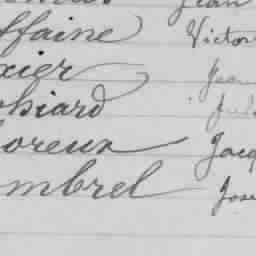 Jean
ffaine Victor
xier Jean
obiard
oreux Jacq
mbrel Jose